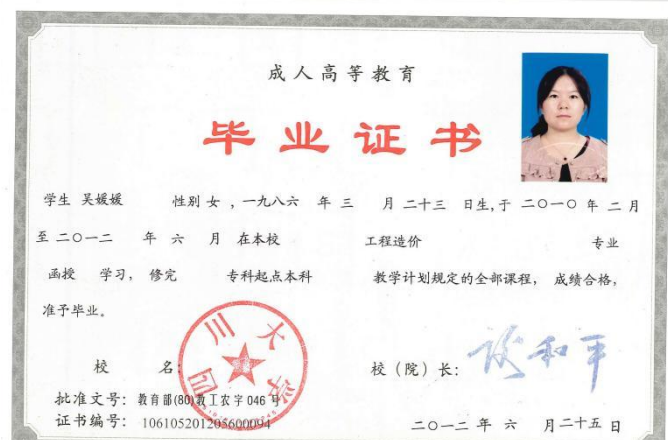 成人高等教育
毕业证书
学生 吴媛媛 性别 女 ，一九八六 年 三 月 二十三 日生，于 二〇一〇 年 二 月
至 二〇一二 年 六 月 在本校 工程造价 专业
函授 学习， 修完 专科起点本科 教学计划规定的全部课程， 成绩合格，
准予毕业。
四川大学
校 名：
校（院）长：
批准文号：教育部(80)教工农字 046 号
证书编号：106105201205600094
二〇一二 年 六 月二十五 日